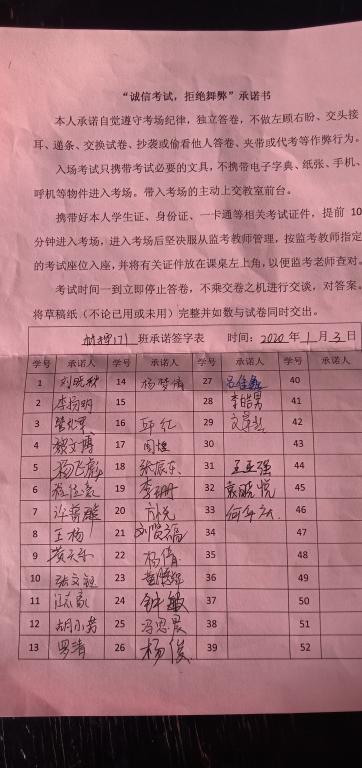 “诚信考试，拒绝舞弊”承诺书
本人承诺自觉遵守考场纪律，独立答卷，不做左顾右盼、交头接
耳、递条、交换试卷、抄袭或偷看他人答卷、夹带或代考等作弊行为。
入场考试只携带考试必要的文具，不携带电子字典、纸张、手机、
呼机等物件进入考场。带入考场的主动上交教室前台。
携带好本人学生证、身份证、一卡通等相关考试证件，提前 10
分钟进入考场，进入考场后坚决服从监考教师管理，按监考教师指定
的考试座位入座，并将有关证件放在课桌左上角，以便监考老师查对。
考试时间一到立即停止答卷，不乘交卷之机进行交谈，对答案。
将草稿纸（不论已用或未用）完整并如数与试卷同时交出。
171 班承诺签字表 时间：2020 年 1 月 3 日
学号 承诺人 学号 承诺人 学号 承诺人 学号 承诺人
1 14 杨梦倩 27 40
2 李杨明 15 28 李皓男 41
3 16 郭红 29 42
4 17 周煜 30 43
5 杨飞彪 18 张辰东 31 王亚强 44
6 程佳豪 19 李珊 32 袁晓悦 45
7 20 方悦 33 46
8 王杨 21 刘贤福 34 47
9 黄天乐 22 杨倩 35 48
10 张文毅 23 36 49
11 江志豪 24 钟敏 37 50
12 胡小勇 25 冯思晨 38 51
13 罗清 26 杨俊 39 52